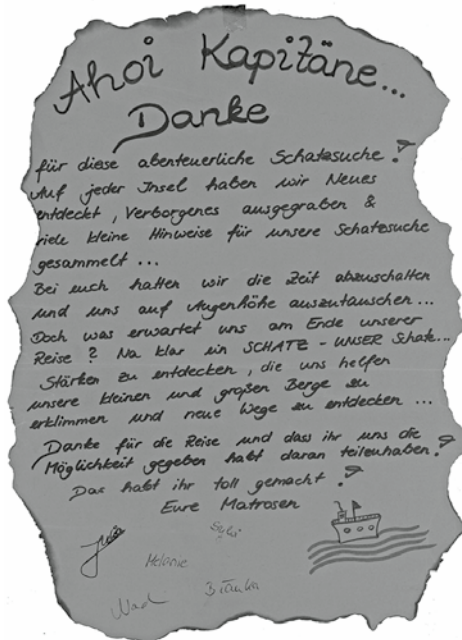 Ahoi Kapitäne...
Danke
für diese abenteuerliche Schatzsuche!
Auf jeder Insel haben wir Neues
entdeckt, Verborgenes ausgegraben &
viele kleine Hinweise für unsere Schatzsuche
gesammelt ...
Bei euch hatten wir die Zeit abzuschalten
und uns auf Augenhöhe auszutauschen ...
Doch was erwartet uns am Ende unserer
Reise? Na klar ein SCHATZ - UNSER Schatz...
Stärken zu entdecken, die uns helfen
unsere kleinen und großen Berge zu
erklimmen und neue Wege zu entdecken ...
Danke für die Reise und dass ihr uns die
Möglichkeit gegeben habt daran teilzuhaben!
Das habt ihr toll gemacht!
Eure Matrosen
Melanie
Bianka